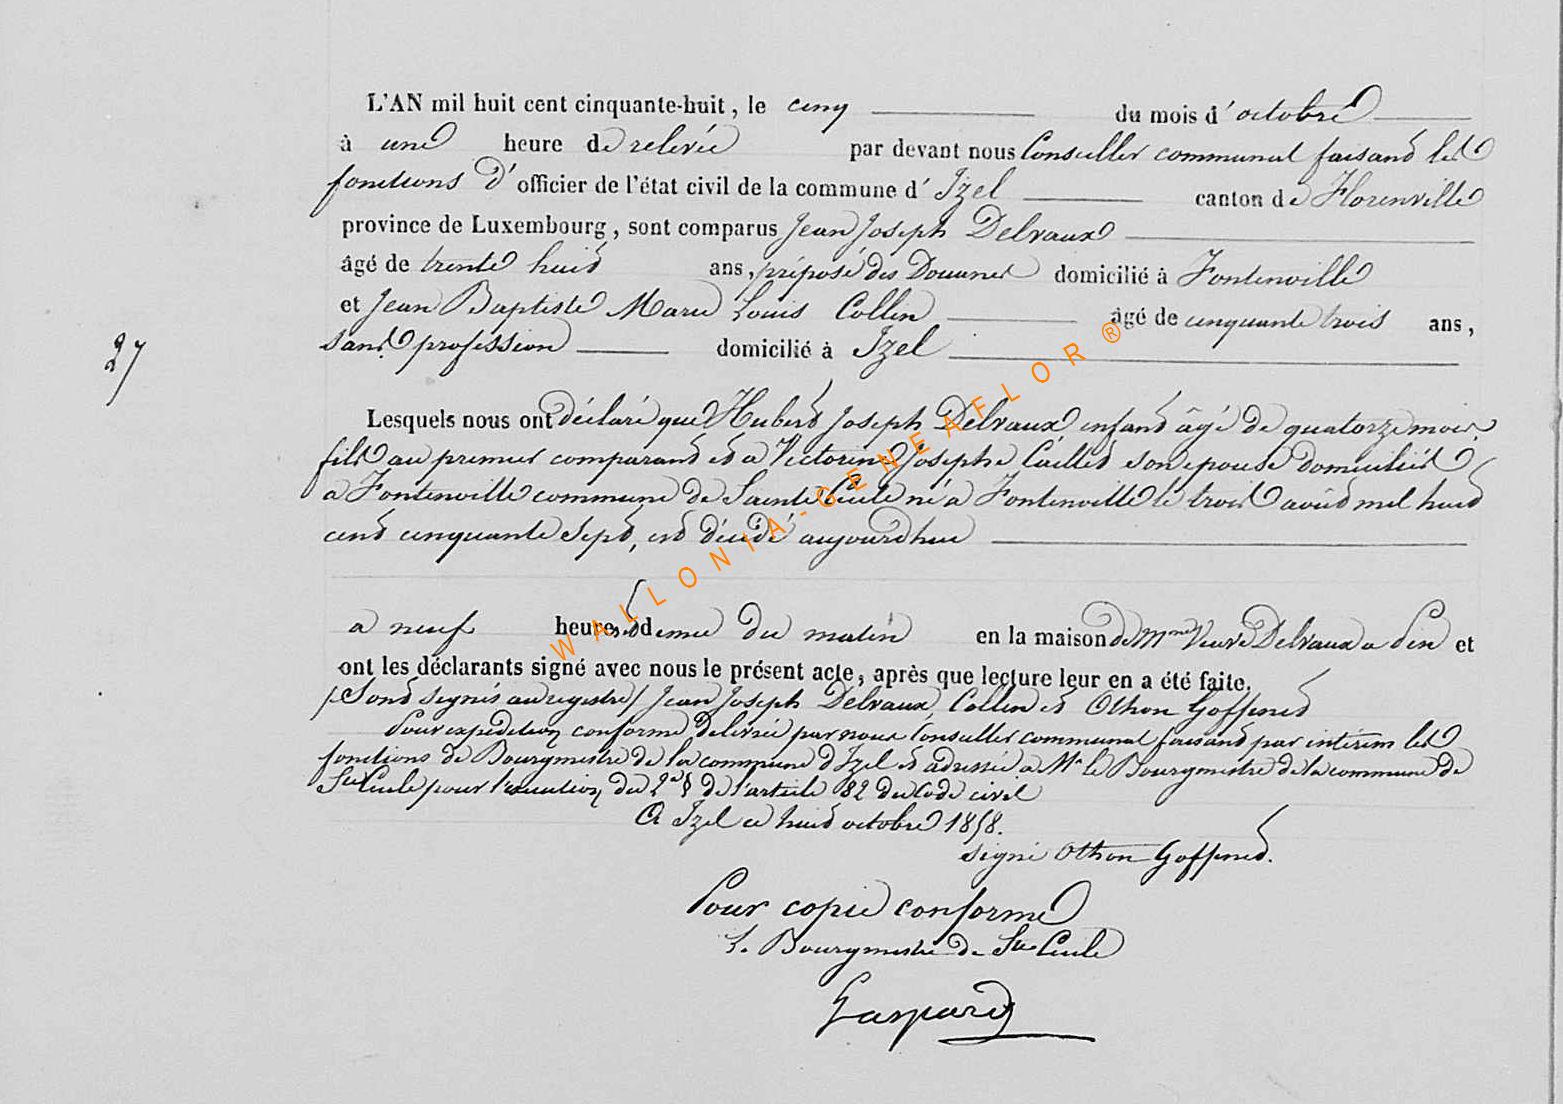 L'AN mil huit cent cinquante-huit, le cinq du mois d'octobre
à une heure de relevée par devant nous Conseiller communal faisant les
fonctions d'officier de l'état civil de la commune d'Izel canton de Florenville
province de Luxembourg, sont comparus Jean Joseph Delvaux
âgé de trente huit ans, préposé des Douanes domicilié à Fontenville
et Jean Baptiste Marie Louis Collin âgé de cinquante trois ans,
27
sans profession domicilié à Izel
Lesquels nous ont déclaré que Hubert Joseph Delvaux enfant âgé de quatorze mois
fils au premier comparant et a Victorine Josephe son epouse domiciliés
a Fontenville commune de Sainte Cécile né a Fontenville le trois août mil huit
cent cinquante sept, est décédé aujourd'hui
a neuf heures et demie du matin en la maison de Mme Veuve Delvaux a et
ont les déclarants signé avec nous le présent acte, après que lecture leur en a été faite.
/Sont signés au registre/ Jean Joseph Delvaux, Collin et Othon Goffinet
Pour expédition conforme délivrée par nous Conseiller communal faisant par intérim les
fonctions de Bourgmestre de la commune d'Izel et adressée a Mr le Bourgmestre de la commune de
Ste Cécile pour l'exécution du 2e § de l'article 82 du Code civil
A Izel ce huit octobre 1858.
signé Othon Goffinet.
Pour copie conforme
L. Bourgmestre de Ste Cécile
Gaspard
WALLONIA-GENEAFLOR®